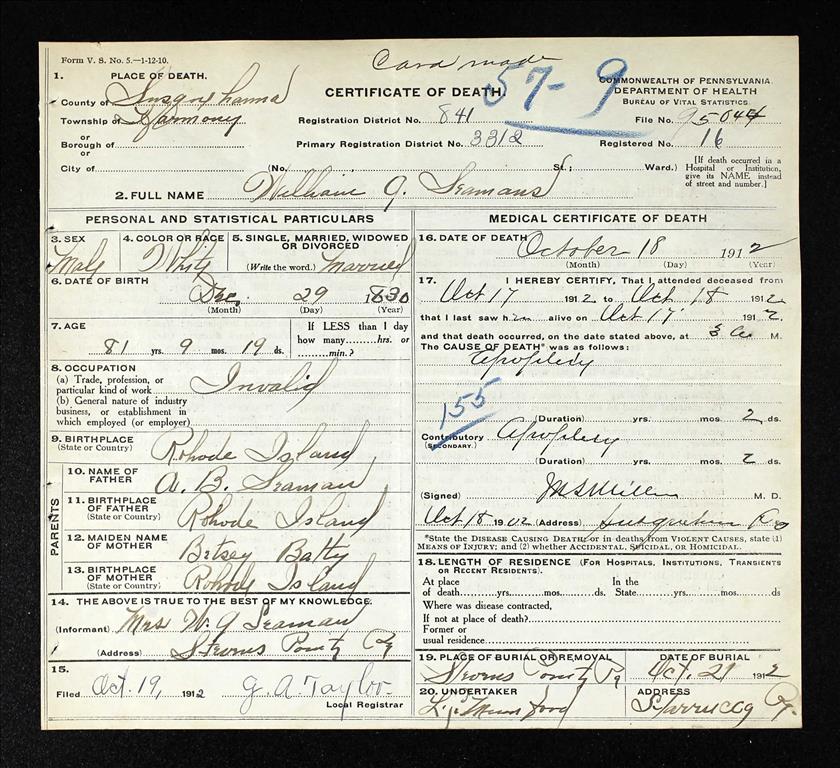 Form V. S. No. 5.—1-12-10.
Card made
1. PLACE OF DEATH.
County of Susquehanna
Township of Harmony
or
Borough of
or
City of
CERTIFICATE OF DEATH
57-9
Registration District No. 841
Primary Registration District No. 3312
(No. St.; Ward.)
COMMONWEALTH OF PENNSYLVANIA
DEPARTMENT OF HEALTH
BUREAU OF VITAL STATISTICS
File No. 95044
Registered No. 16
[If death occurred in a
Hospital or Institution,
give its NAME instead
of street and number.]
2. FULL NAME William G. Seamans
PERSONAL AND STATISTICAL PARTICULARS
3. SEX
Male
4. COLOR OR RACE
White
5. SINGLE, MARRIED, WIDOWED
OR DIVORCED
(Write the word.) Married
6. DATE OF BIRTH
Dec. 29 1830
(Month) (Day) (Year)
7. AGE
81 yrs. 9 mos. 19 ds.
If LESS than 1 day
how many........hrs. or
.........min.?
8. OCCUPATION
(a) Trade, profession, or
particular kind of work
Invalid
(b) General nature of industry
business, or establishment in
which employed (or employer)
9. BIRTHPLACE
(State or Country)
Rohode Island
PARENTS
10. NAME OF
FATHER
A. B. Seaman
11. BIRTHPLACE
OF FATHER
(State or Country)
Rohode Island
12. MAIDEN NAME
OF MOTHER
Betsey Batty
13. BIRTHPLACE
OF MOTHER
(State or Country)
Rohode Island
14. THE ABOVE IS TRUE TO THE BEST OF MY KNOWLEDGE.
(Informant) Mrs W. G Seaman
(Address) Stevens Point Pa
15.
Filed Oct. 19, 1912 G. A. Taylor
Local Registrar
MEDICAL CERTIFICATE OF DEATH
16. DATE OF DEATH
October 18 1912
(Month) (Day) (Year)
17. I HEREBY CERTIFY, That I attended deceased from
Oct 17 1912 to Oct 18 1912
that I last saw him alive on Oct 17 1912
and that death occurred, on the date stated above, at 3 a M.
The CAUSE OF DEATH* was as follows:
Apoplexy
155
(Duration) yrs. mos. 2 ds.
Contributory Apoplexy
(SECONDARY.)
(Duration) yrs. mos. 2 ds.
(Signed) Miller M. D.
Oct 18 1902 (Address) Susquehanna Pa
*State the DISEASE CAUSING DEATH; or in deaths from VIOLENT CAUSES, state (1)
MEANS OF INJURY; and (2) whether ACCIDENTAL, SUICIDAL, OR HOMICIDAL.
18. LENGTH OF RESIDENCE (FOR HOSPITALS, INSTITUTIONS, TRANSIENTS
OR RECENT RESIDENTS).
At place In the
of death......yrs......mos......ds. State......yrs......mos......ds.
Where was disease contracted,
If not at place of death?
Former or
usual residence
19. PLACE OF BURIAL OR REMOVAL
Stevens Point Pa
DATE OF BURIAL
Oct. 21 1912
20. UNDERTAKER
ADDRESS
Starrucca Pa.